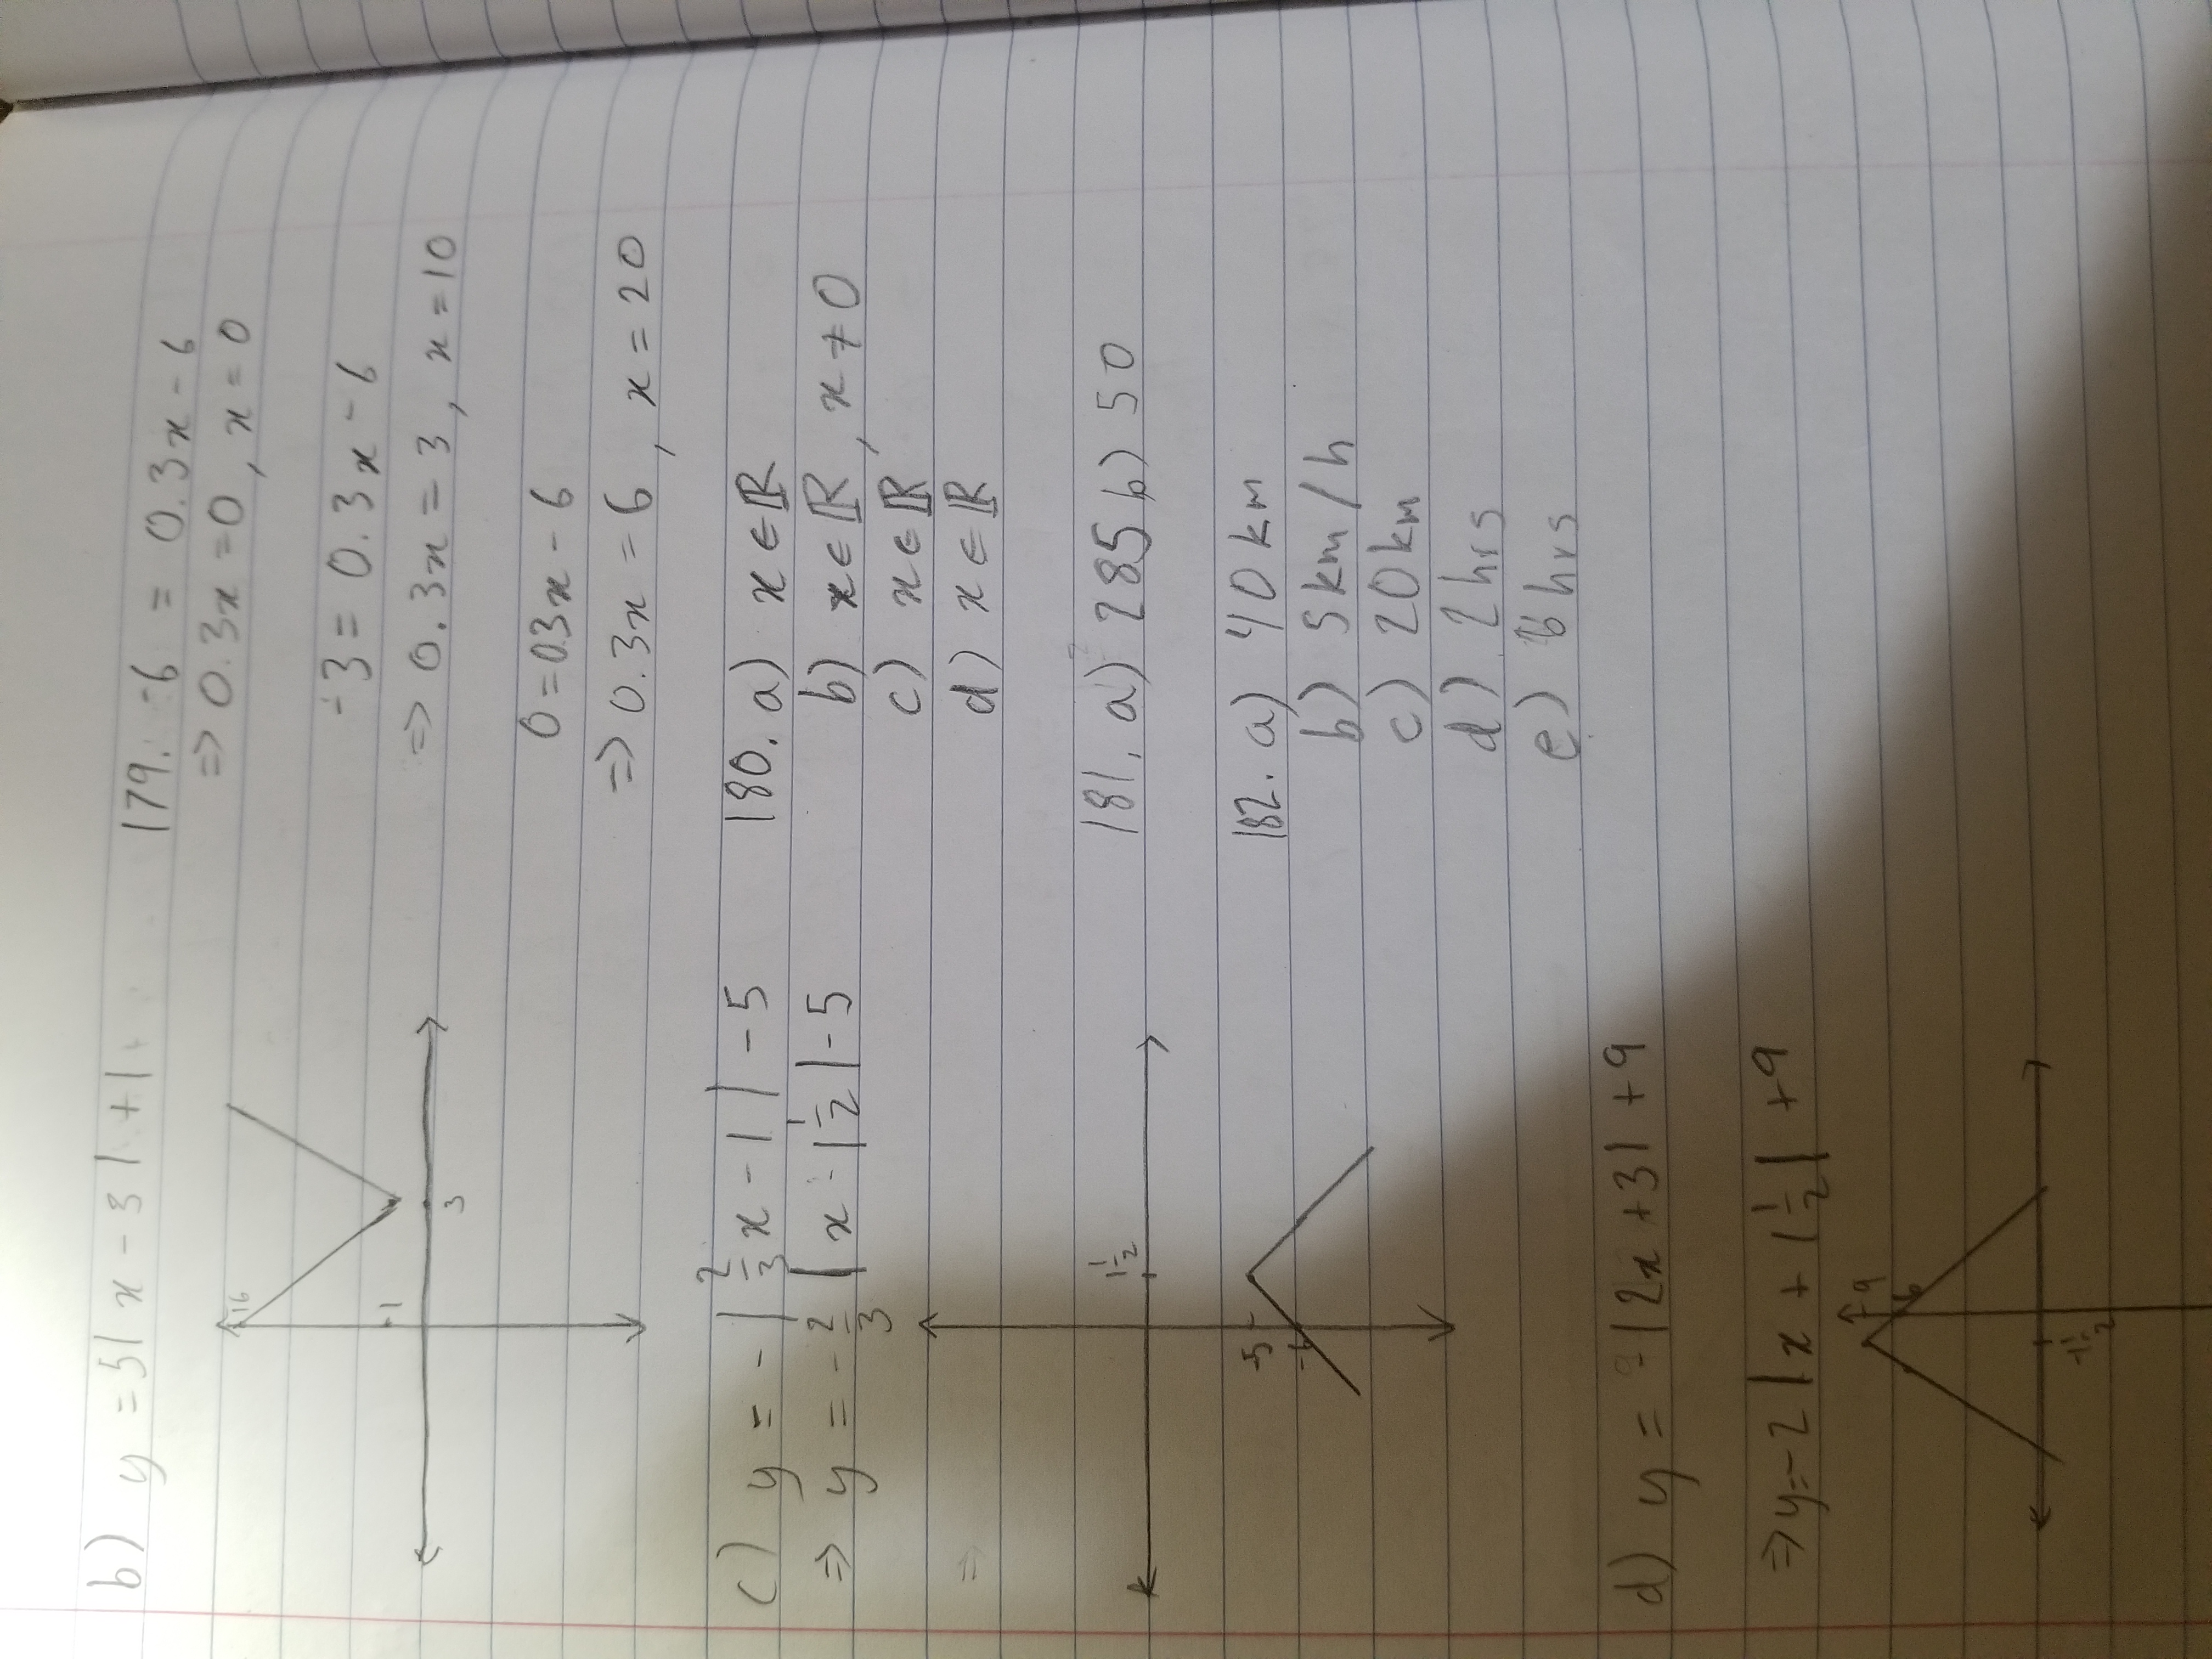 b) y = 5|x - 3| + 1
16
1
3
c) y = -|2/3 x - 1| - 5
⇒ y = -2/3 |x - 1 1/2| - 5
⇒
1 1/2
-5
-6
d) y = -|2x + 3| + 9
⇒ y = -2|x + 1 1/2| + 9
9
6
-1 1/2
179. -6 = 0.3x - 6
⇒ 0.3x = 0, x = 0
-3 = 0.3x - 6
⇒ 0.3x = 3, x = 10
0 = 0.3x - 6
⇒ 0.3x = 6, x = 20
180. a) x ∈ ℝ
b) x ∈ ℝ, x ≠ 0
c) x ∈ ℝ
d) x ∈ ℝ
181. a) 285 b) 50
182. a) 40 km
b) 5 km/h
c) 20 km
d) 2 hrs
e) 6 hrs